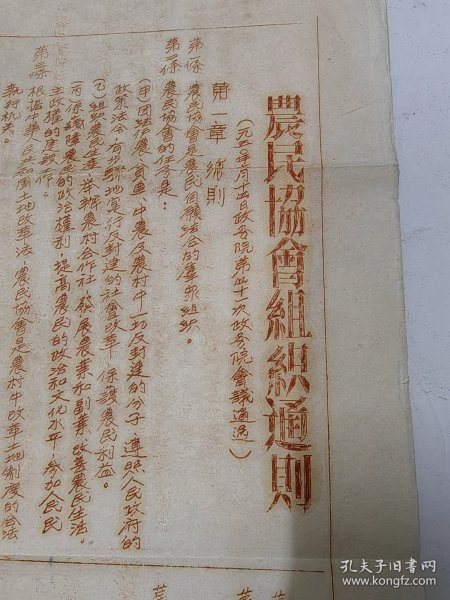 農民協會組織通則
(一九五〇年七月十四日政务院第四十一次政务院会議通過)
第一章 總則
第一條 農民協會是農民自願結合的羣众組织。
第二條 農民協會的任务是:
(甲)團結僱農、貧農、中農及農村中一切反封建的分子,遵照人民政府的
政策法令,有步驟地实行反封建的社會改革,保護農民利益。
(乙)組織農民生產,举辦農村合作社,發展農業和副業,改善農民生活。
(丙)保障農民的政治權利,提高農民的政治和文化水平,參加人民民
主政權的建設工作。
第三條 根據中華人民共和國土地改革法,農民協會是農村中改革土地制度的合法
执行机关。
孔夫子旧书网
www.kongfz.com